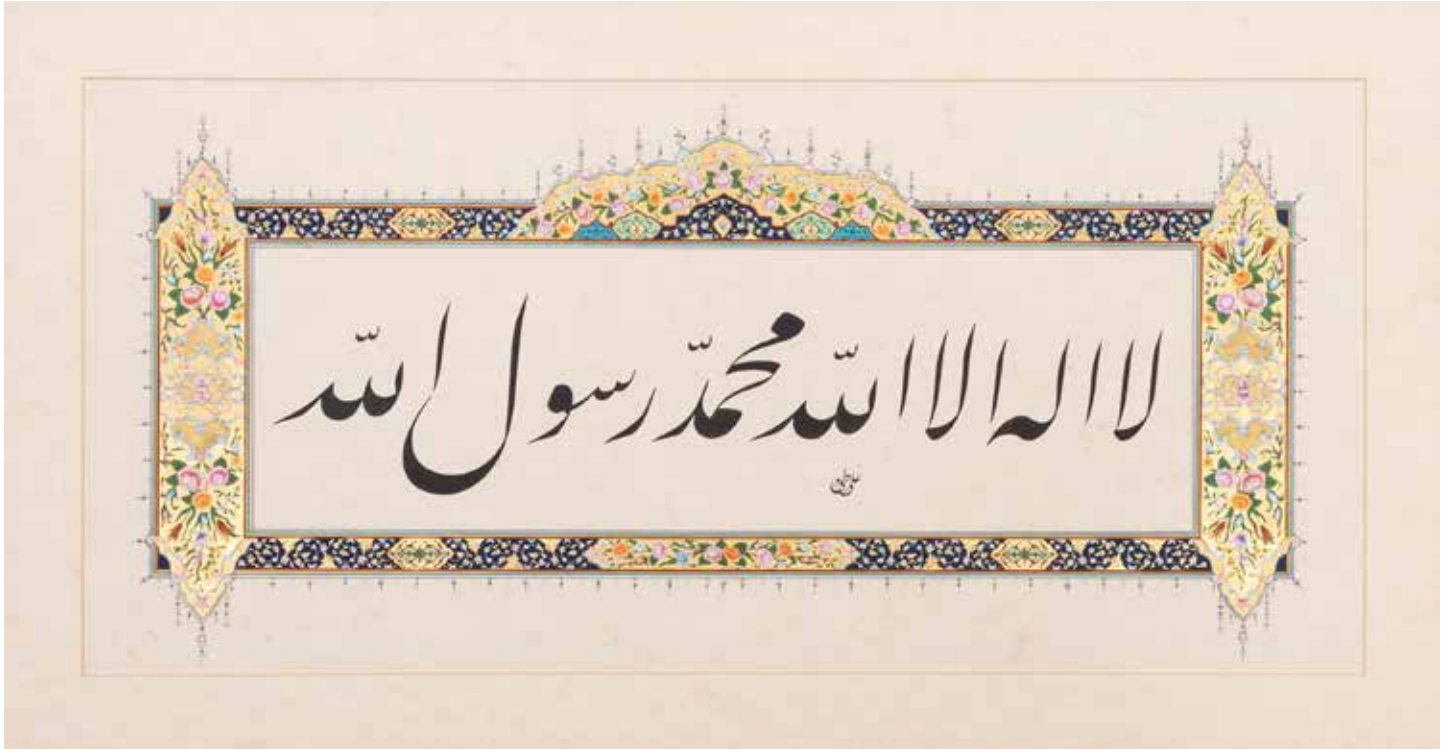 لا اله الا الله محمّد رسول الله